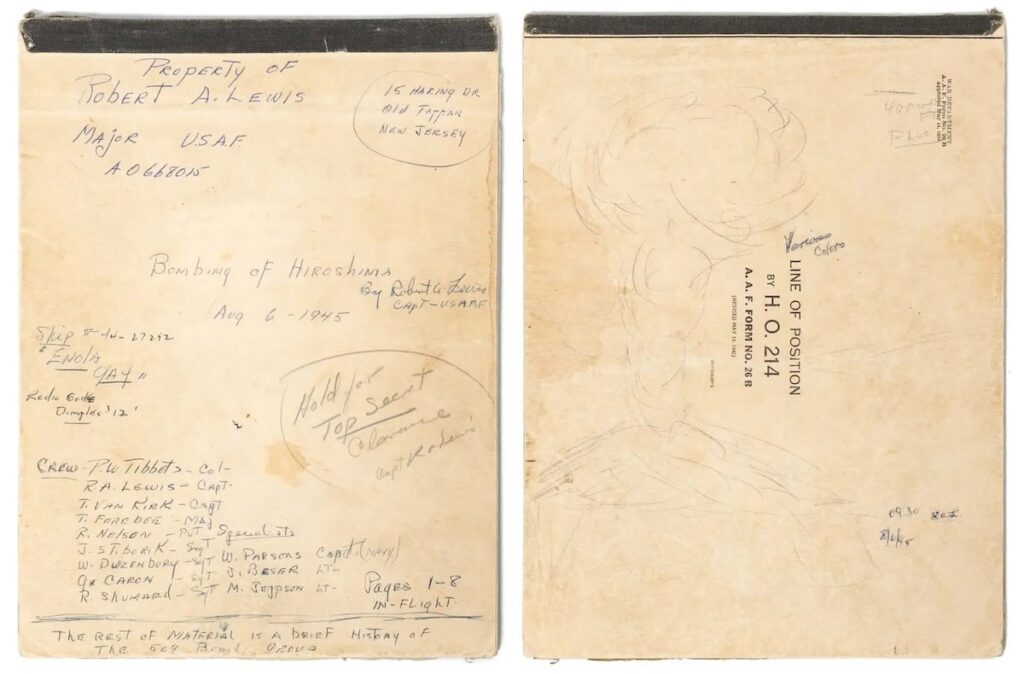 PROPERTY OF
ROBERT A. LEWIS
MAJOR USAF
AO668015
15 HARING DR
Old TAPPAN
NEW JERSEY
BOMBING OF HIROSHIMA
By Robert A. Lewis
CAPT - USAAF
Aug 6 - 1945
Ship # 44-27292
"ENOLA
GAY"
Radio Code
Dimples '12'
Hold for
TOP Secret
Clearance
Capt R A Lewis
CREW - P.W TIBBETS - Col -
R.A. LEWIS - CAPT -
T. VAN KIRK - Capt
T. FEREBEE - MAJ
R. NELSON - PVT
J. STIBORIK - Sgt
W. DUZENBURY - SgT
CARON - SgT
R. SHUMARD - SgT
Specialists
W. PARSONS Capt. (NAVY)
J. BESER LT-
M. JEPPSON LT-
PAGES 1-8
IN-FLIGHT
THE REST OF MATERIAL IS A BRIEF HISTORY OF
THE 509 BOMB GROUP
WAR DEPARTMENT
A. A. F. Form No. 26 B
Various
Colors
LINE OF POSITION
BY
H. O. 214
A. A. F. FORM NO. 26 B
(REVISED MAY 14, 1942)
09:30 RaL
8/6/45